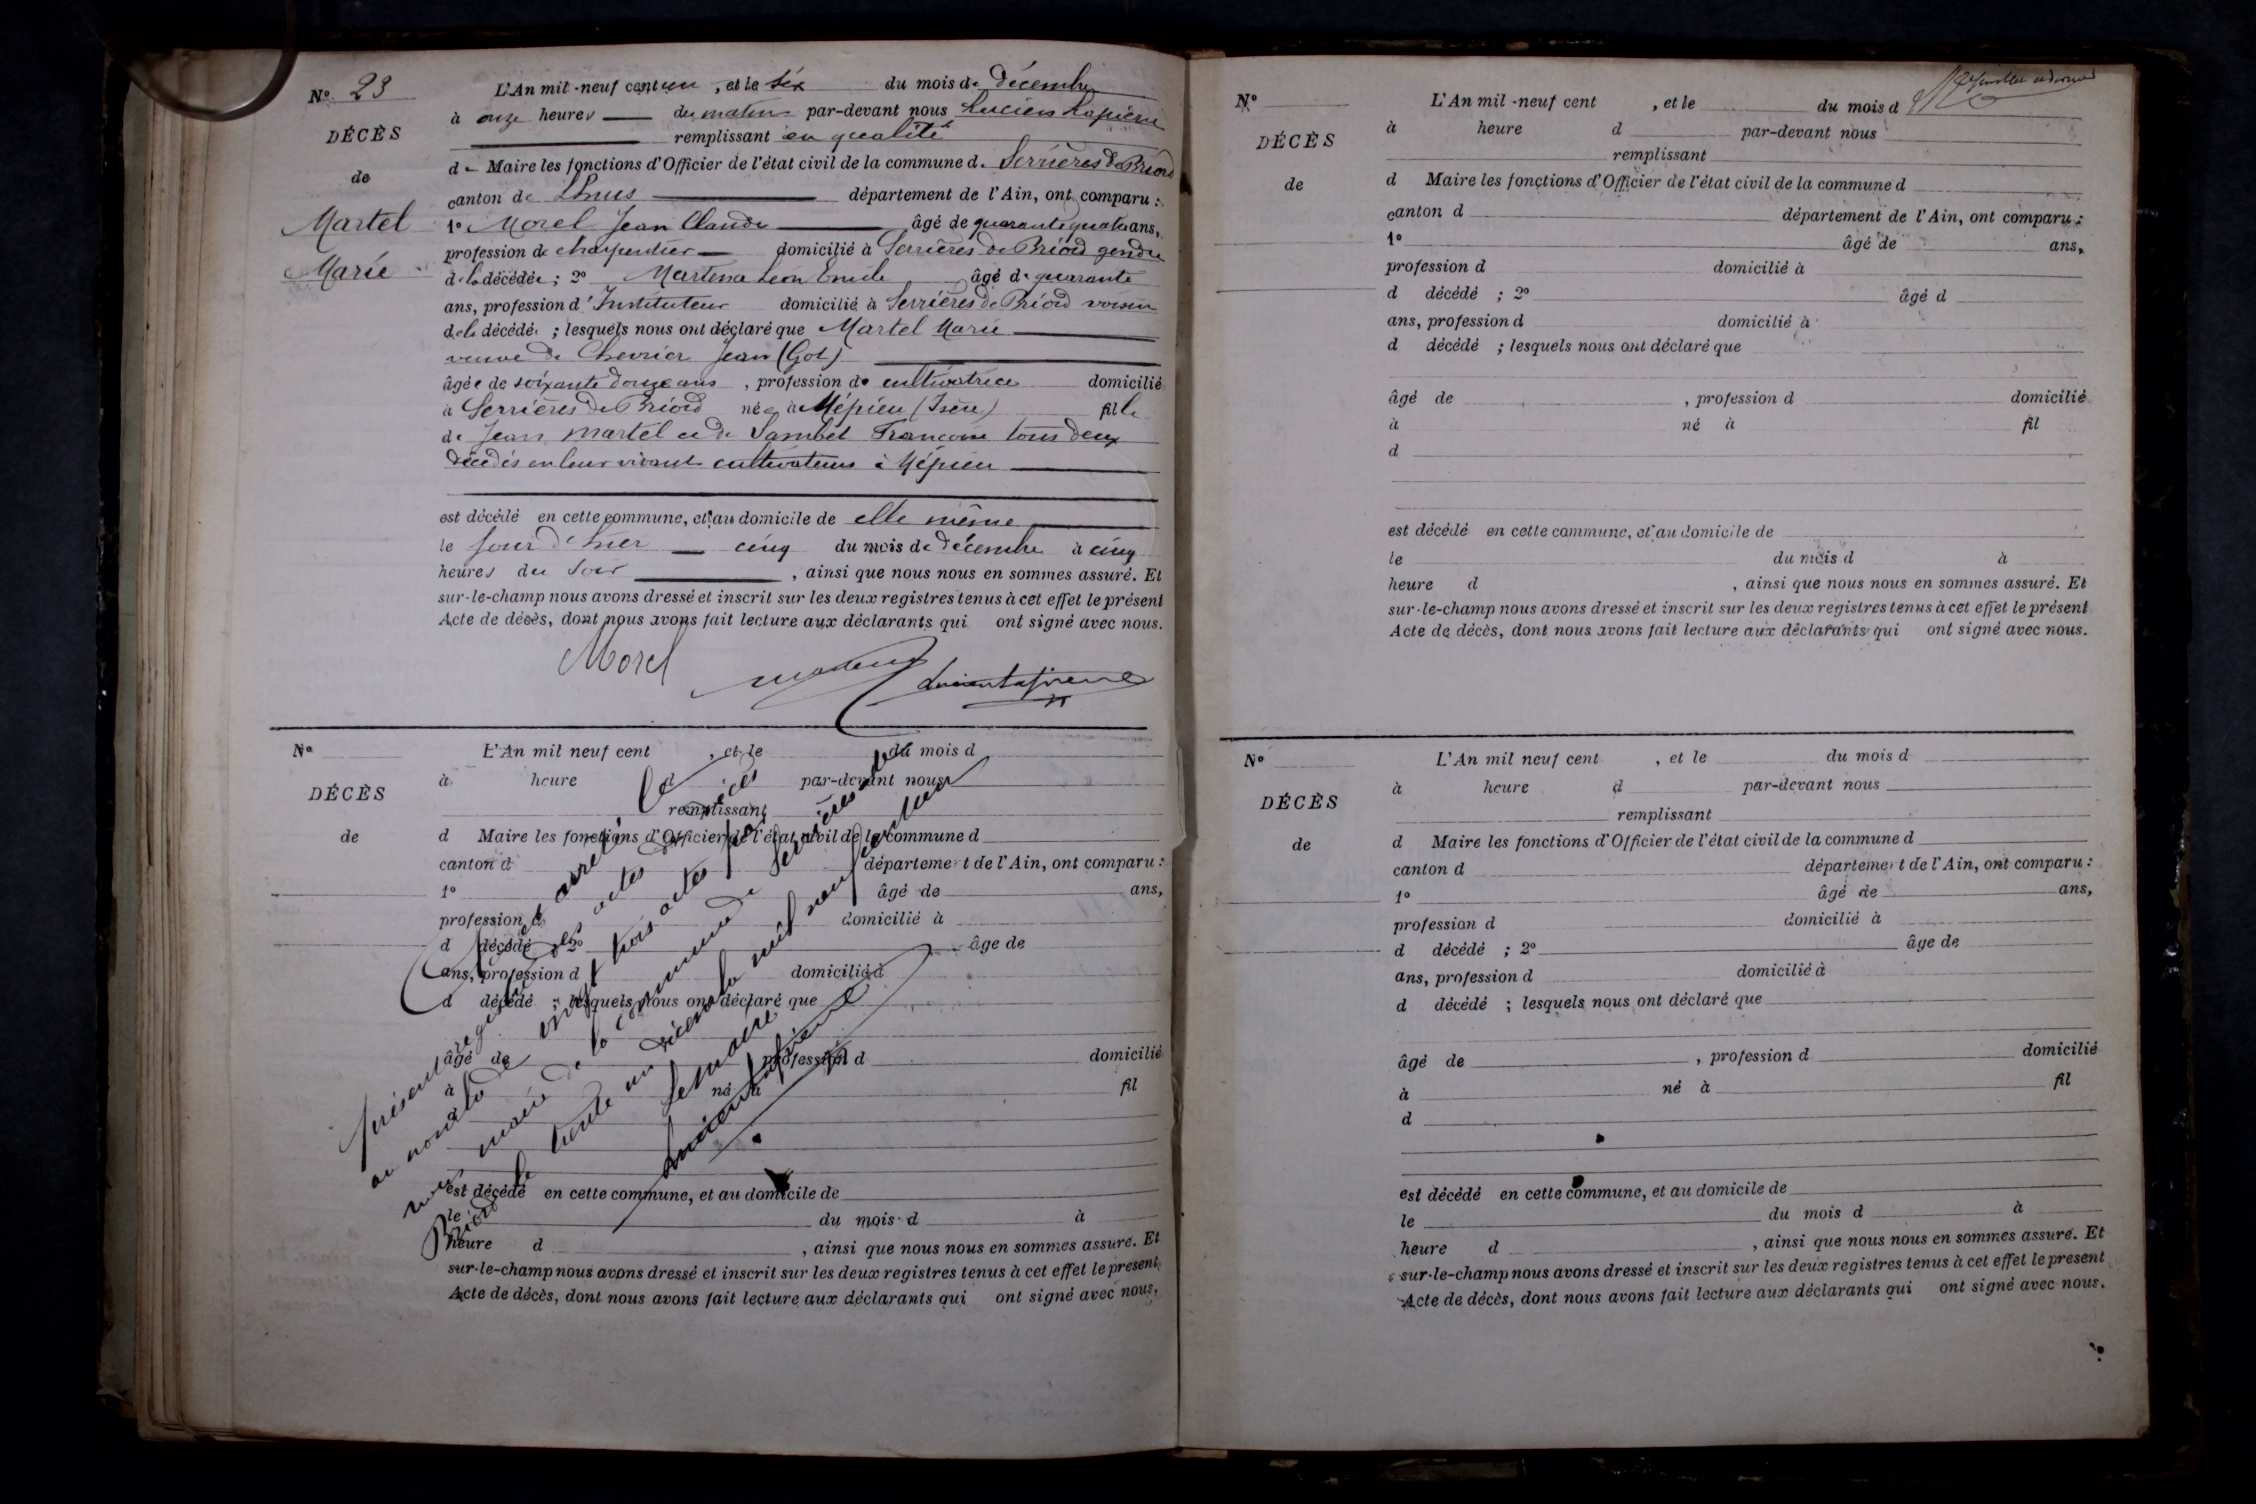 Nº 23
DÉCÈS
de
Martel
Marie
L'An mil-neuf cent un, et le six du mois de décembre
à onze heures du matin par-devant nous Lucien Lapierre
remplissant en qualité
de Maire les fonctions d'Officier de l'état civil de la commune de Serrières de Briord
canton de Lhuis département de l'Ain, ont comparu :
1º Morel Jean Claude âgé de quarante quatre ans,
profession de charpentier domicilié à Serrières de Briord gendre
de la décédée ; 2º Léon Emile âgé de quarante
ans, profession d'Instituteur domicilié à Serrières de Briord voisin
de la décédée ; lesquels nous ont déclaré que Martel Marie
veuve de Chevrier Jean (Got)
âgée de soixante douze ans, profession de cultivatrice domicilié
à Serrières de Briord née à Mépieu (Isère) fille
de Jean Martel et de Sambet Françoise tous deux
décédés en leur vivant cultivateurs à Mépieu
est décédé en cette commune, et au domicile de elle même
le jour d'hier cinq du mois de décembre à cinq
heures du soir, ainsi que nous nous en sommes assuré. Et
sur-le-champ nous avons dressé et inscrit sur les deux registres tenus à cet effet le présent
Acte de décès, dont nous avons fait lecture aux déclarants qui ont signé avec nous.
Morel
Lucien Lapierre
Nº
DÉCÈS
de
L'An mil neuf cent , et le du mois d
à heure d par-devant nous
remplissant
d Maire les fonctions d'Officier de l'état civil de la commune d
canton d département de l'Ain, ont comparu :
1º âgé de ans,
profession d domicilié à
d décédé ; 2º âge de
ans, profession d domicilié à
d décédé ; lesquels nous ont déclaré que
âgé de , profession d domicilié
à né à fil
d
est décédé en cette commune, et au domicile de
le du mois d à
heure d , ainsi que nous nous en sommes assuré. Et
sur-le-champ nous avons dressé et inscrit sur les deux registres tenus à cet effet le présent
Acte de décès, dont nous avons fait lecture aux déclarants qui ont signé avec nous.
arrêté le
présent registre des actes de décès
au nombre de vingt trois actes par
nous maire de la commune de Serrières de
Briord le trente un décembre mil neuf cent un
Le maire
Lucien Lapierre
Nº
DÉCÈS
de
L'An mil-neuf cent , et le du mois d
à heure d par-devant nous
remplissant
d Maire les fonctions d'Officier de l'état civil de la commune d
canton d département de l'Ain, ont comparu :
1º âgé de ans,
profession d domicilié à
d décédé ; 2º âgé d
ans, profession d domicilié à
d décédé ; lesquels nous ont déclaré que
âgé de , profession d domicilié
à né à fil
d
est décédé en cette commune, et au domicile de
le du mois d à
heure d , ainsi que nous nous en sommes assuré. Et
sur-le-champ nous avons dressé et inscrit sur les deux registres tenus à cet effet le présent
Acte de décès, dont nous avons fait lecture aux déclarants qui ont signé avec nous.
Nº
DÉCÈS
de
L'An mil neuf cent , et le du mois d
à heure d par-devant nous
remplissant
d Maire les fonctions d'Officier de l'état civil de la commune d
canton d département de l'Ain, ont comparu :
1º âgé de ans,
profession d domicilié à
d décédé ; 2º âge de
ans, profession d domicilié à
d décédé ; lesquels nous ont déclaré que
âgé de , profession d domicilié
à né à fil
d
est décédé en cette commune, et au domicile de
le du mois d à
heure d , ainsi que nous nous en sommes assuré. Et
sur-le-champ nous avons dressé et inscrit sur les deux registres tenus à cet effet le présent
Acte de décès, dont nous avons fait lecture aux déclarants qui ont signé avec nous.